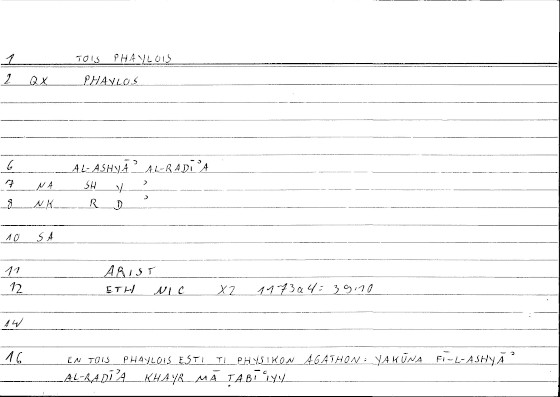 1 TOIS PHAYLOIS
2 QX PHAYLOS
6 AL-ASHYĀʾ AL-RADĪʾA
7 NA SH Y ʾ
8 NK R D ʾ
10 SA
11 ARIST
12 ETH NIC X2 1173a4 = 39:10
14
16 EN TOIS PHAYLOIS ESTI TI PHYSIKON AGATHON = YAKŪNA FĪ-L-ASHYĀʾ
AL-RADĪʾA KHAYR MĀ ṬABĪʿIYY